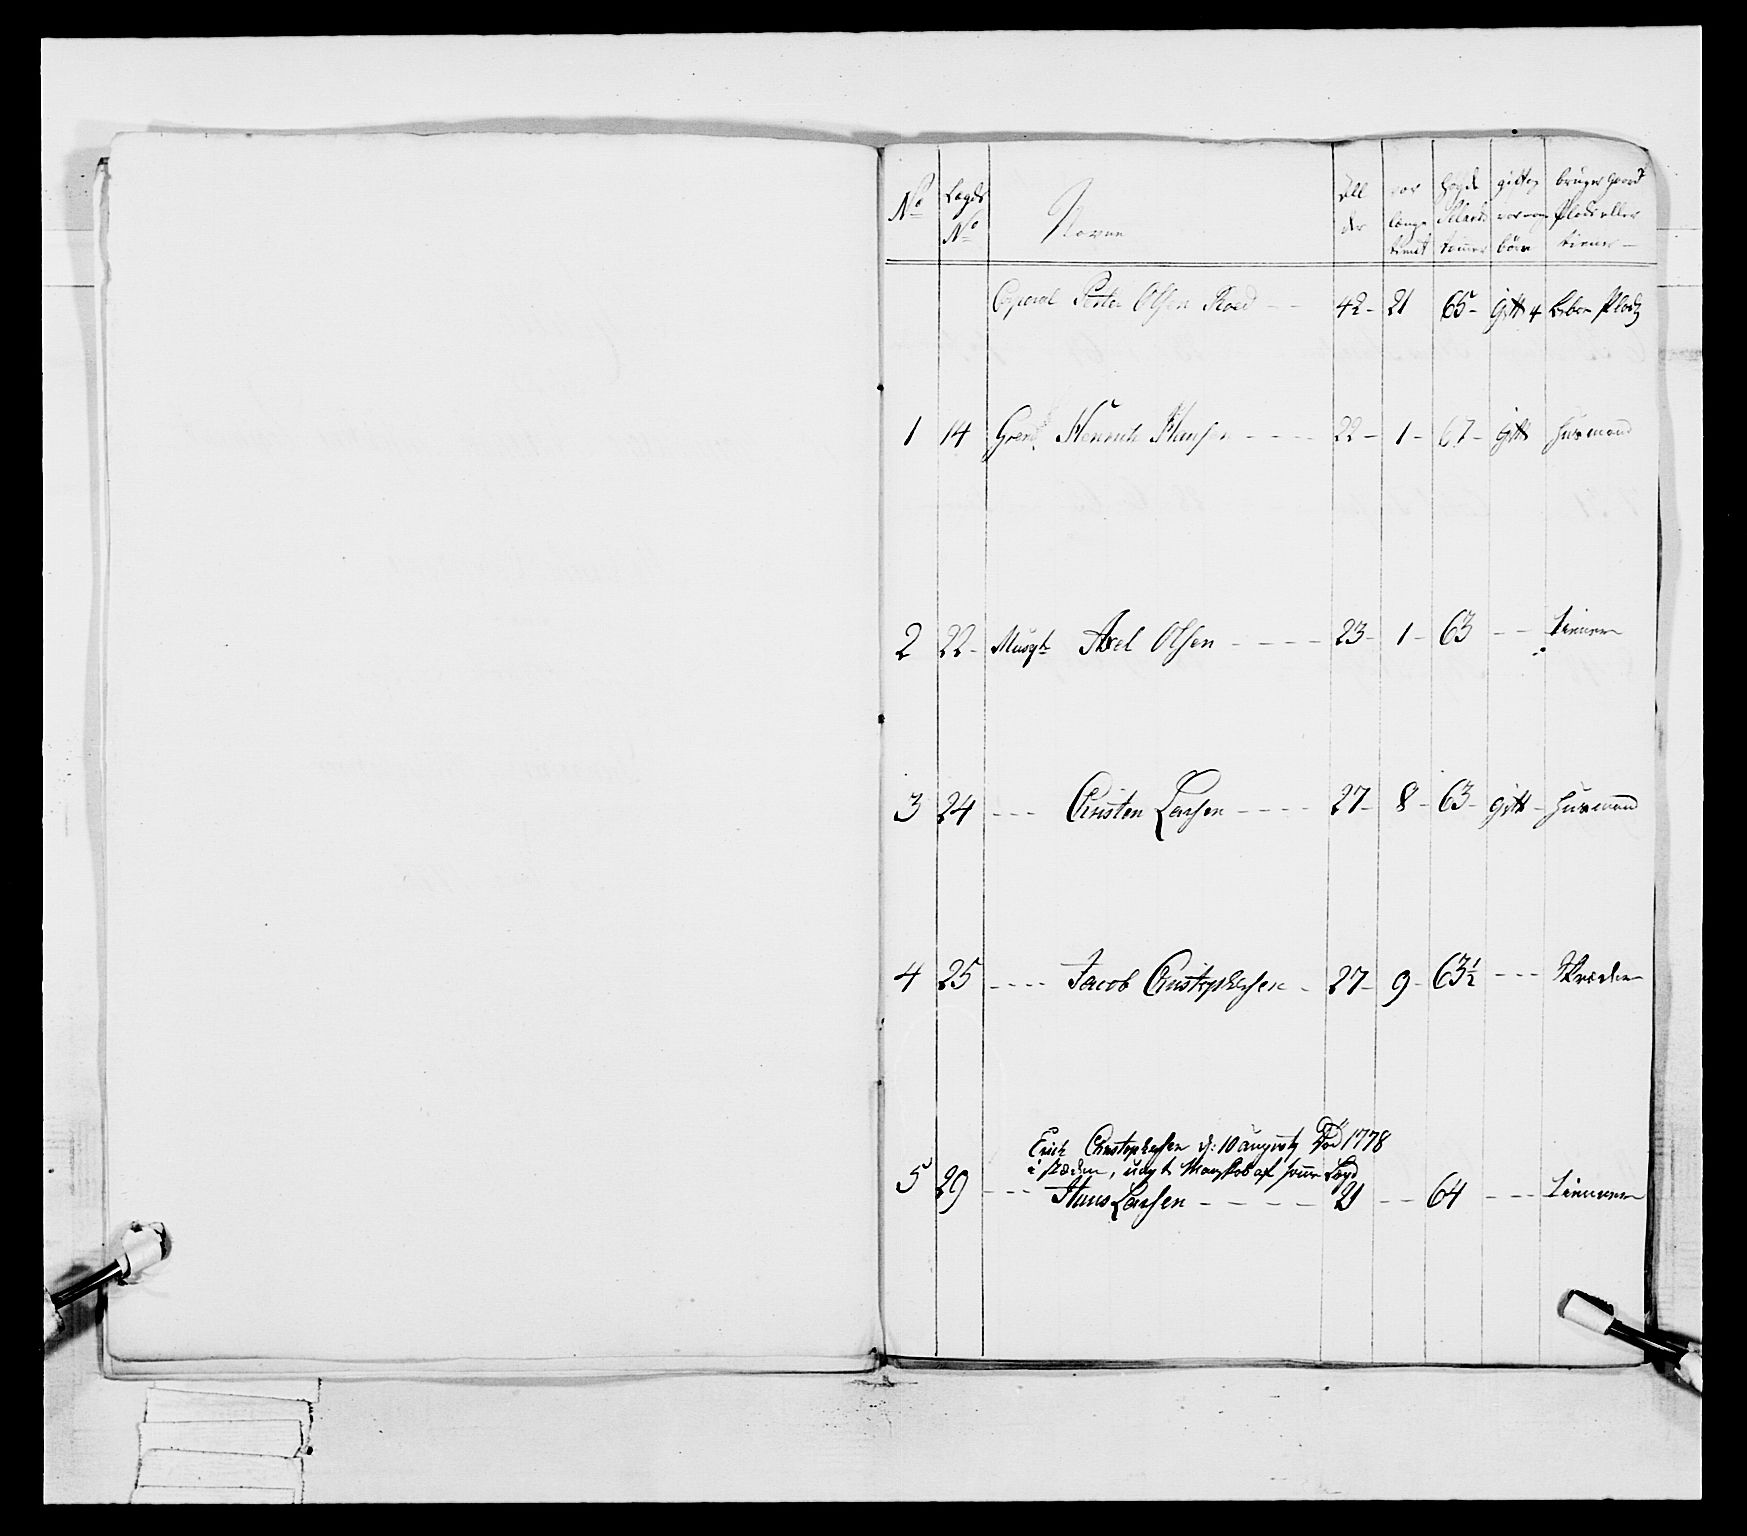 No Lægds No Navne All der vor længe tient høyde giftog vormange börn bruger Gaard Plads eller tiener
Corporal Peder Olsen Roed - - 42 - 21 65 - gift 4 Plads
1 14 Gren. Henrich Hansen - - - - 22 - 1 - 67 - gift husmand
2 22 - Musqt Axel Olsen - - - - 23 - 1 - 63 - - tienner
3 24 - - - Christen Larsen - - - - 27 - 8 - 63 - gift - husmand
4 25 - - - - Jacob Christophersen - 27 - 9 - 63 1/2 - - - Skræder
Erich Christophersen d: 10 augusty Död 1778
i stæden, udgt Mandskab af samme Lægd
5 29 - - - Hans Larsen - - - - - 21 - - 64 - - - tienner